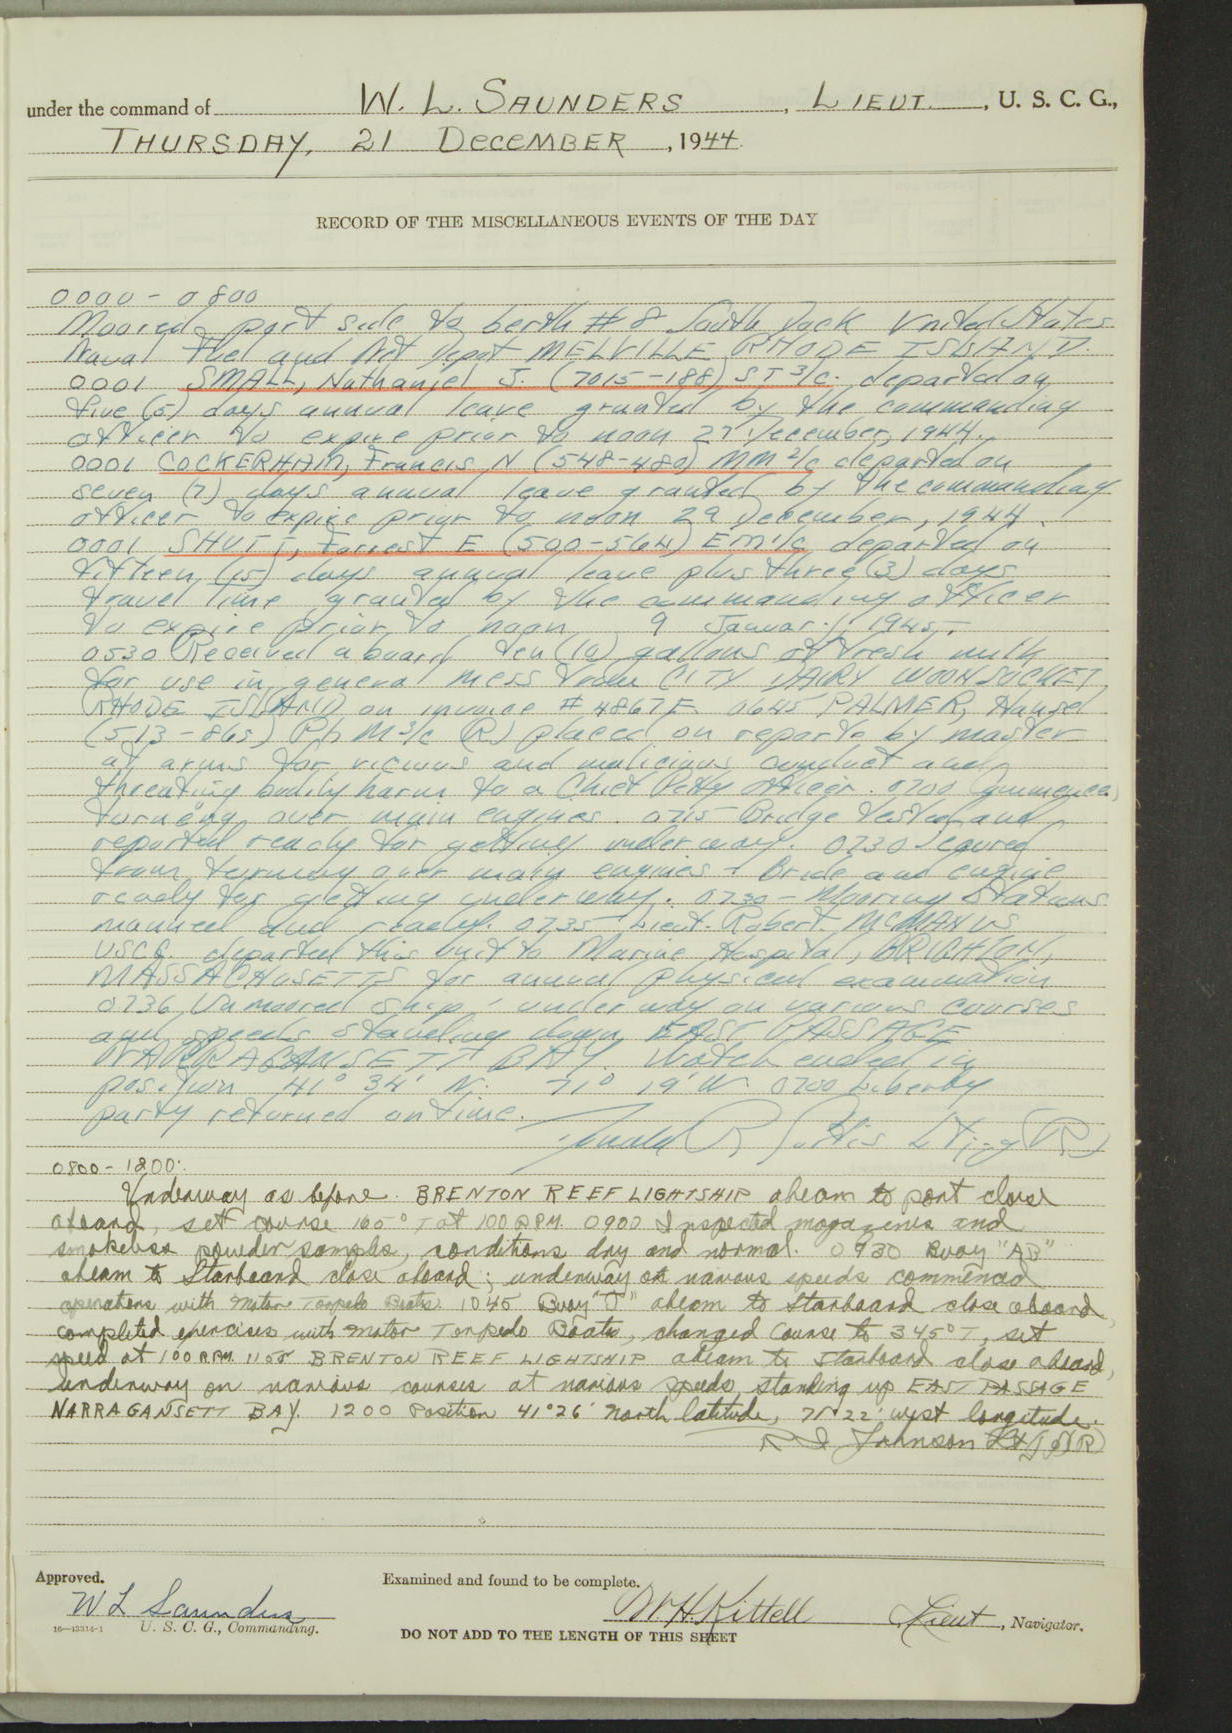 under the command of W. L. SAUNDERS, LIEUT., U. S. C. G.,
THURSDAY, 21 DECEMBER, 1944.
RECORD OF THE MISCELLANEOUS EVENTS OF THE DAY
0000 - 0800
Moored port side to berth # 8 South Dock United States
Naval Fuel and Net Depot MELVILLE RHODE ISLAND.
0001 SMALL, Nathaniel J. (7015-188) ST 3/c. departed on
five (5) days annual leave granted by the commanding
officer to expire prior to noon 27 December, 1944.
0001 COCKERHAM, Francis N (548-480) MM 2/c departed on
seven (7) days annual leave granted by the commanding
officer to expire prior to noon 29 December, 1944.
0001 SHUTT, Forrest E (500-564) EM 1/c departed on
fifteen (15) days annual leave plus three (3) days
travel time granted by the commanding officer
to expire prior to noon 9 January 1945.
0530 Received aboard ten (10) gallons of fresh milk
for use in general mess from CITY DAIRY WOONSOCKET
RHODE ISLAND on invoice # 4867F. 0645 PALMER, Hansel
(513-865) Ph M 3/c (R) placed on reporte by master
at arms for vicious and malicious conduct and
threating bodily harm to a Chief Petty officer. 0700 Commenced
turning over main engines. 0715 Bridge tested and
reported ready for getting underway. 0730 Secured
from turning over main engines - Bride and engine
ready for getting underway. 0730 - Mooring Stations
manned and ready. 0735 Lieut. Robert MCMANUS
USCG. departed this unit to Marine Hospital, BRIGHTON,
MASSACHUSETTS for annual physical examination
0736 Unmoored ship; underway on various courses
and speeds standing down EAST PASSAGE
NARRAGANSETT BAY. Watch ended in
position 41° 34' N; 71° 19' W. 0700 Liberty
party returned on time.
Lt (jg) (R)
0800 - 1200:
Underway as before. BRENTON REEF LIGHTSHIP abeam to port close
aboard, set course 165° T at 100 RPM. 0900 Inspected magazines and
smokeless powder samples, conditions dry and normal. 0930 Buoy "AB"
abeam to Starboard close aboard; underway at various speeds commenced
operations with Motor Torpedo Boats. 1045 Buoy "J" abeam to Starboard close aboard,
completed exercises with Motor Torpedo Boats, changed course to 345° T, set
speed at 100 RPM. 1155 BRENTON REEF LIGHTSHIP abeam to starboard close aboard,
underway on various courses at various speeds, standing up EAST PASSAGE
NARRAGANSETT BAY. 1200 Position 41°26' North latitude, 71°22' west longitude.
Johnson Lt (jg) (R)
Approved.
Examined and found to be complete.
W L Saunders
W. H. Kittell Lieut, Navigator.
16—13314-1 U. S. C. G., Commanding.
DO NOT ADD TO THE LENGTH OF THIS SHEET